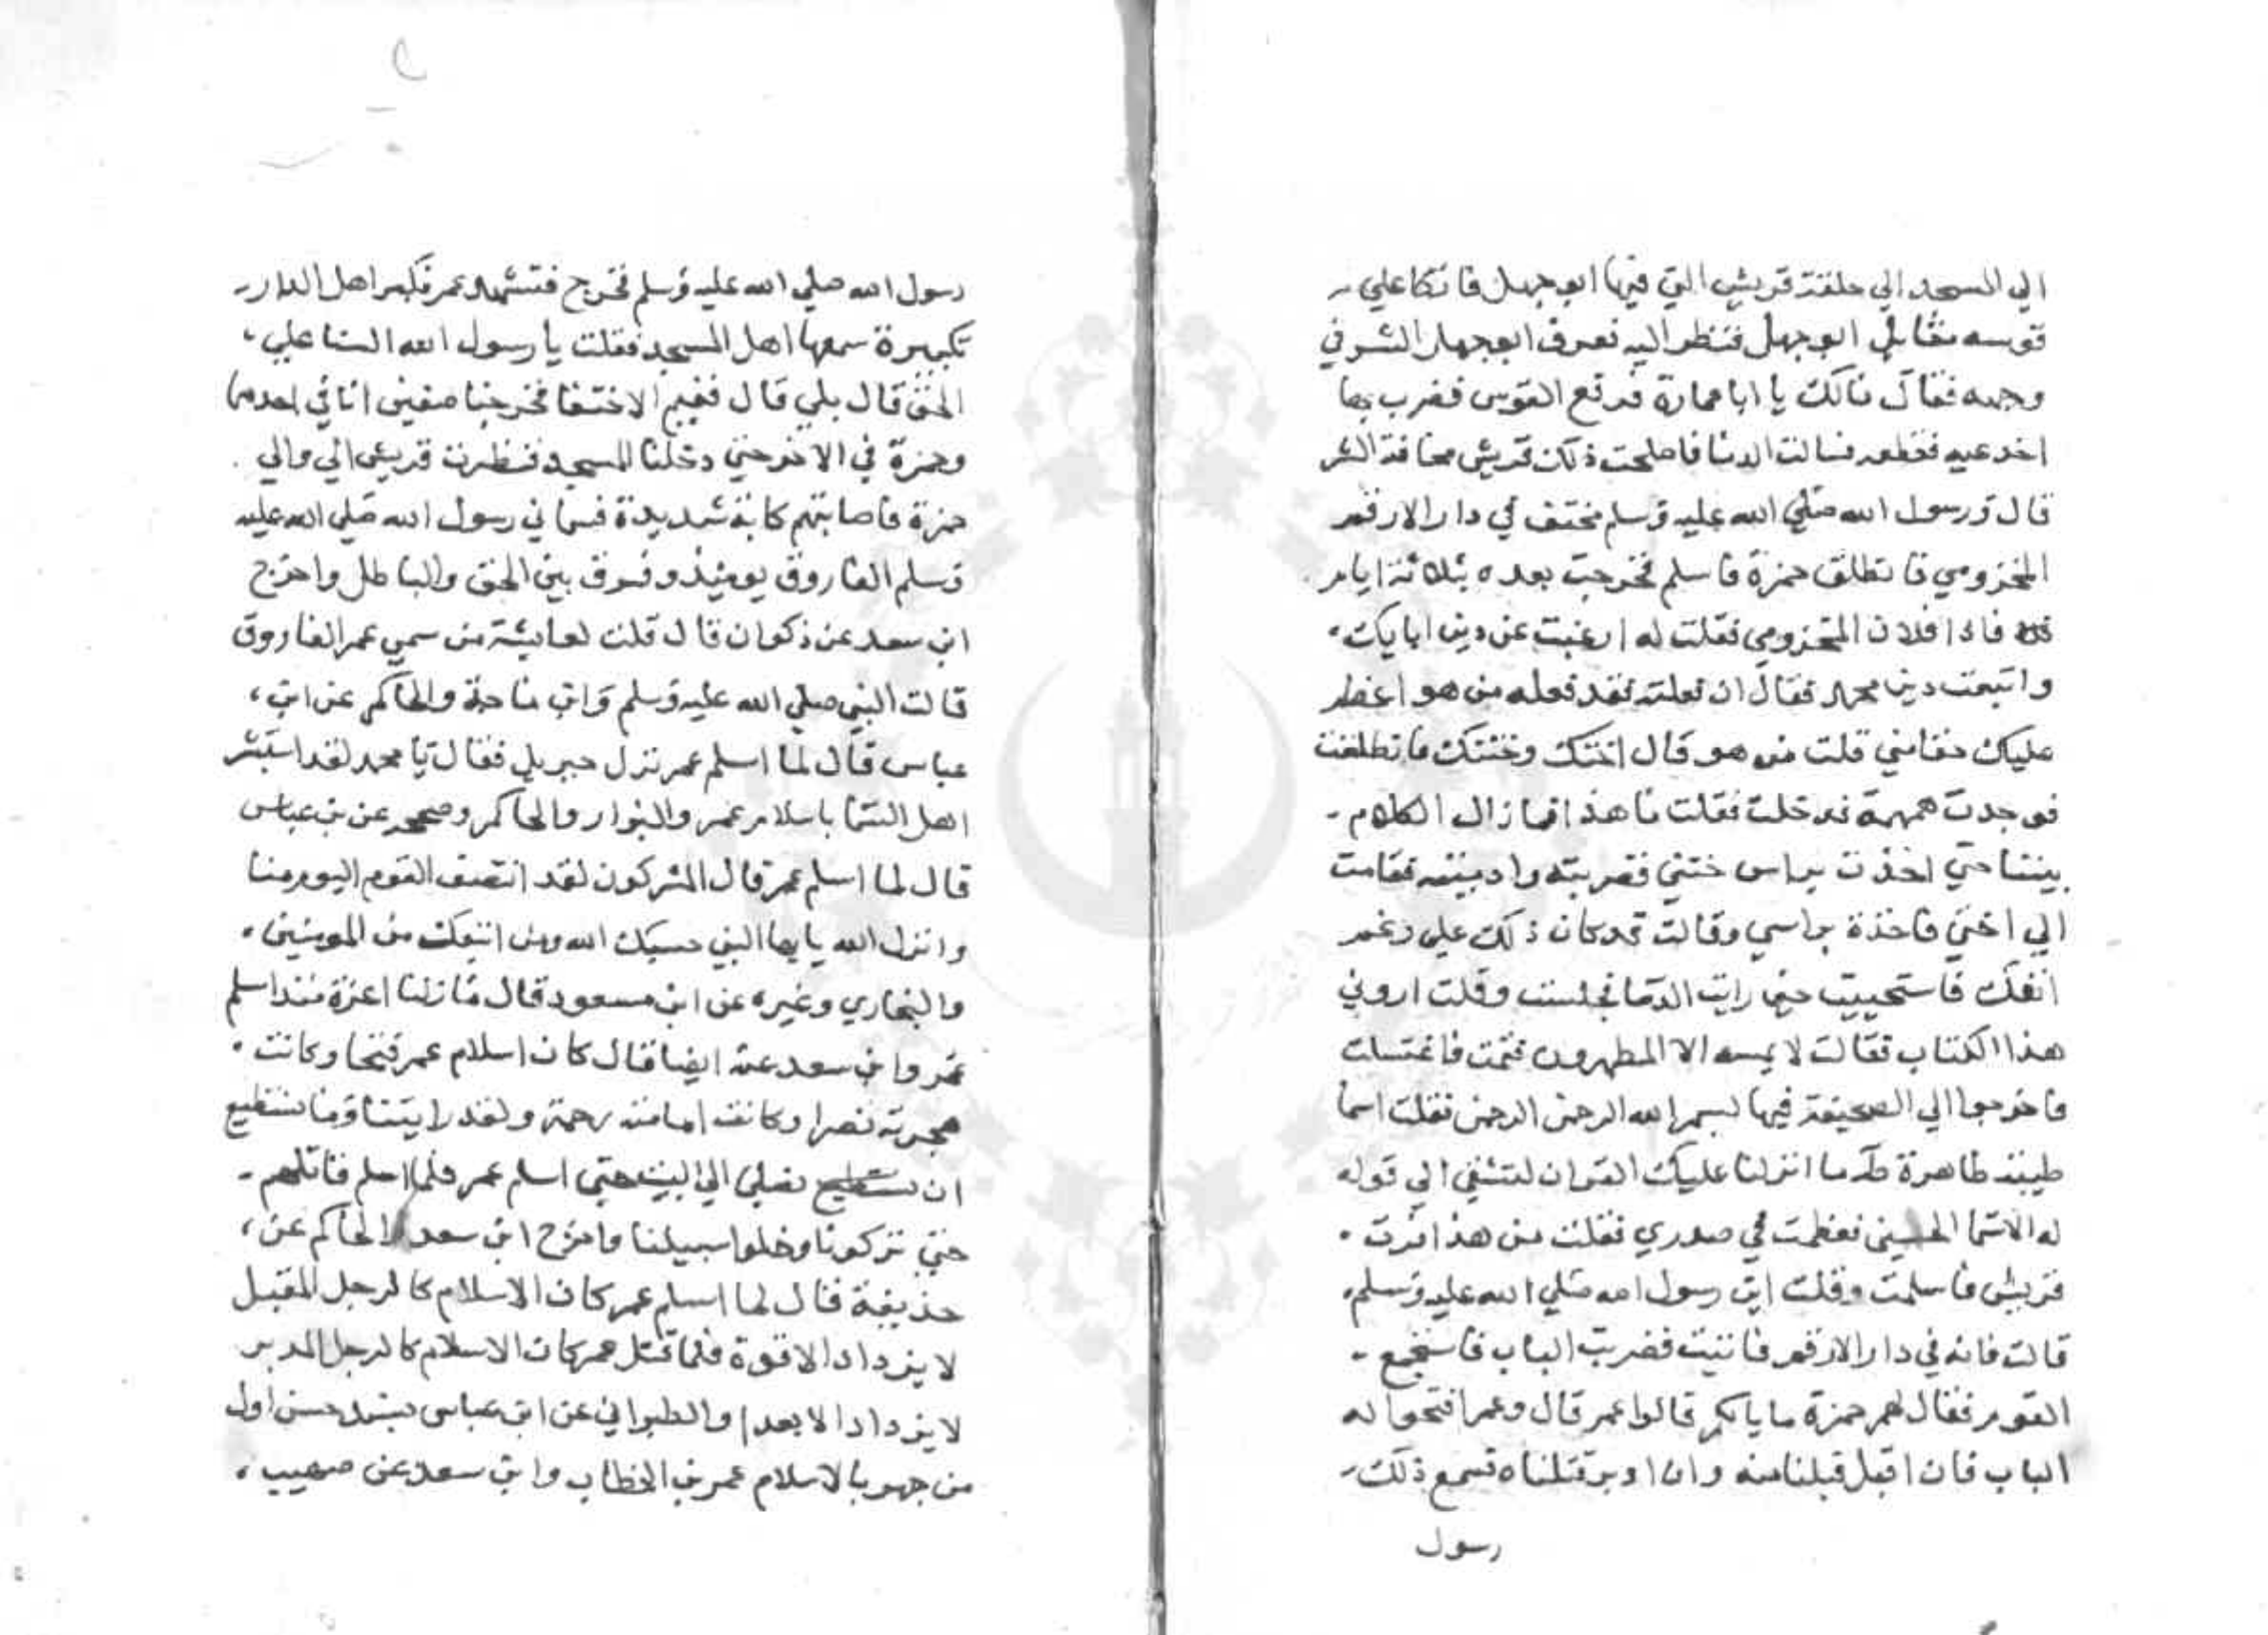 الي المسجد الي حلقة قريش التي فيها ابو جهل فاتكا علي
قوسه مقابل ابو جهل فنظر اليه فعرف ابو جهل الشر في
وجهه فقال مالك يا ابا عمارة فرفع القوس فضرب بها
اخدعيه فقطعه فسالت الدما فاصلحت ذلك قريش مخافة الشر
قال ورسول الله صلي الله عليه وسلم مختف في دار الارقم
المخزومي فانطلق حمزة فاسلم فخرجت بعده بثلاثة ايام
فاذا فلان المخزومي فقلت له ارغبت عن دين ابايك
واتبعت دين محمد فقال ان فعلته فقد فعله من هو اعظم
عليك حقا مني قلت من هو قال اختك وختنك فانطلقت
فوجدت همهمة فدخلت فقلت ما هذا فما زال الكلام
بيننا حتي اخذت براس ختني فضربته وادميته فقامت
الي اختي فاخذة براسي وقالت قد كان ذلك علي رغم
انفك فاستحييت حين رايت الدما فجلست وقلت اروني
هذا الكتاب فقالت لا يمسه الا المطهرون فقمت فاغتسلت
فاخرجوا الي الصحيفة فيها بسم الله الرحمن الرحيم فقلت اسما
طيبة طاهرة طه ما انزلنا عليك القران لتشقي الي قوله
له الاسما الحسني فعظمت في صدري فقلت من هذا فرت
قريش فاسلمت وقلت اين رسول الله صلي الله عليه وسلم
قالت فانه في دار الارقم فاتيت فضربت الباب فاستجمع
القوم فقال لهم حمزة ما يالكم قالوا عمر قال وعمر افتحوا له
الباب فان اقبل قبلنا منه وان ادبر قتلناه فسمع ذلك
رسول
رسول الله صلي الله عليه وسلم فخرج فتشهد عمر فكبر اهل الدار
تكبيرة سمعها اهل المسجد فقلت يا رسول الله السنا علي
الحق قال بلي قال ففيم الاختفا فخرجنا صفين انا في احدهما
وحمزة في الاخر حتي دخلنا المسجد فنظرت قريش الي والي
حمزة فاصابتهم كابة شديدة فسماني رسول الله صلي الله عليه
وسلم الفاروق يومئذ وفرق بين الحق والباطل واخرج
ابن سعد عن ذكوان قال قلت لعايشة من سمي عمر الفاروق
قالت النبي صلي الله عليه وسلم وابن ماجة والحاكم عن ابن
عباس قال لما اسلم عمر نزل جبريل فقال يا محمد لقد استبشر
اهل السما باسلام عمر والبزار والحاكم وصححه عن بن عباس
قال لما اسلم عمر قال المشركون لقد انتصف القوم اليوم منا
وانزل الله يا يها النبي حسبك الله ومن اتبعك من المومنين
والبخاري وغيره عن ابن مسعود قال ما زلنا اعزة منذ اسلم
عمر وابن سعد عنه ايضا قال كان اسلام عمر فتحا وكانت
هجرته نصرا وكانت امامته رحمة ولقد رايتنا وما نستطيع
ان نصلي الي البيت حتي اسلم عمر فلما اسلم قاتلهم
حتي تركونا وخلوا سبيلنا واخرج ابن سعد والحاكم عن
حذيفة قال لما اسلم عمر كان الاسلام كالرجل المقبل
لا يزداد الا قوة فلما قتل عمر كان الاسلام كالرجل المدبر
لا يزداد الا بعدا والطبراني عن ابن عباس بسند حسن اول
من جهر بالاسلام عمر بن الخطاب وابن سعد عن صهيب